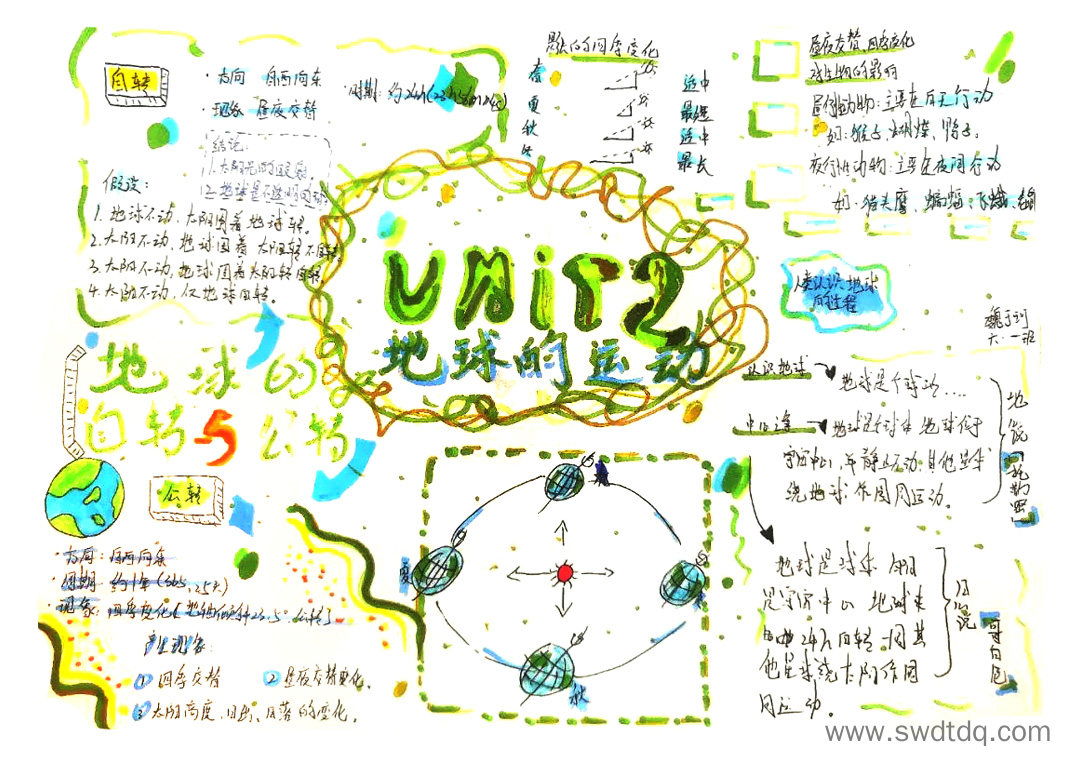 自转
·方向 自西向东
·现象 昼夜交替
·周期:约24h(23h56m4s)
结论:
1.太阳光的照射
2.地球是不透明的球
假设:
1.地球不动,太阳围着地球转。
2.太阳不动,地球围着太阳转不自转
3.太阳不动,地球围着太阳转自转
4.太阳不动,仅地球自转。
影长的四季变化
春 适中
夏 最短
秋 适中
冬 最长
昼夜交替、四季变化
对生物的影响
昼行动物:主要在白天行动
如:猴子、蝴蝶、鸽子。
夜行性动物:主要在夜间行动
如:猫头鹰、蝙蝠、飞蛾
UNiT2
地球的运动
地球的
自转与公转
人类认识地球
的过程
六·一班
认识地球
地球是个球
地球是球体 地球位于
宇宙中心,且静止不动.其他星球
绕地球作圆周运动。
地心说
托勒密
地球是球体
是宇宙中心 地球
24h自转.
他星球绕太阳作圆
周运动。
日心说
哥白尼
公转
·方向:自西向东
·周期:约1年(365.25天)
·现象:四季变化(
产生现象:
①四季交替
②昼夜交替变化、
③太阳高度、日出、日落的变化。
春
夏
秋
www.swdtdq.com